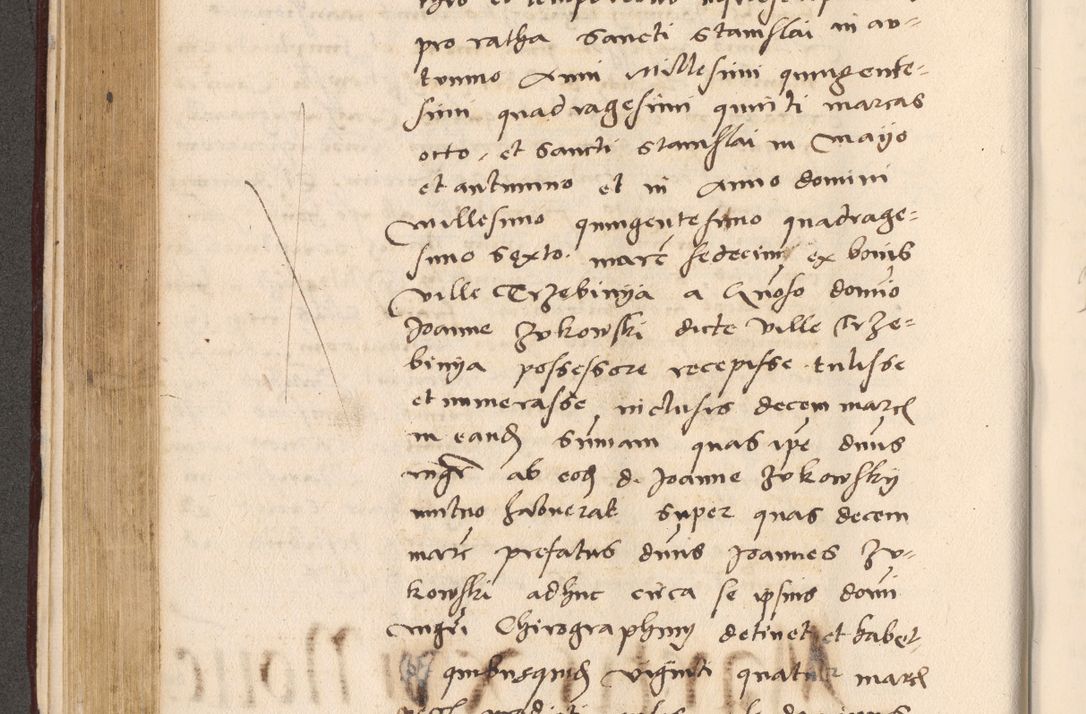 pro ratha Sancti Stanislai in au-
tumno Anni Millesimi quingente-
simi quadragesimi quinti marcas
octo, et Sancti Stanislai in Mayo
et autumno et in Anno domini
Millesimo quingentesimo quadrage-
simo Sexto. marc sedecim ex bonis
Ville Trzebinya a Gnoso domino
Joanne Zukowski dicte Ville Trze-
binya possessore recepisse tulisse
et numerasse, inclusis decem marc
in eand summam quas ipe dnus
mgr ab eod d. Joanne Zukowsky
mutuo habuerat super quas decem
marc prefatus dnus Joannes Zu-
kowski adhuc circa se ipsius domi
mgri Chirographum detinet et habet
quibusquid viginti quatuor marc